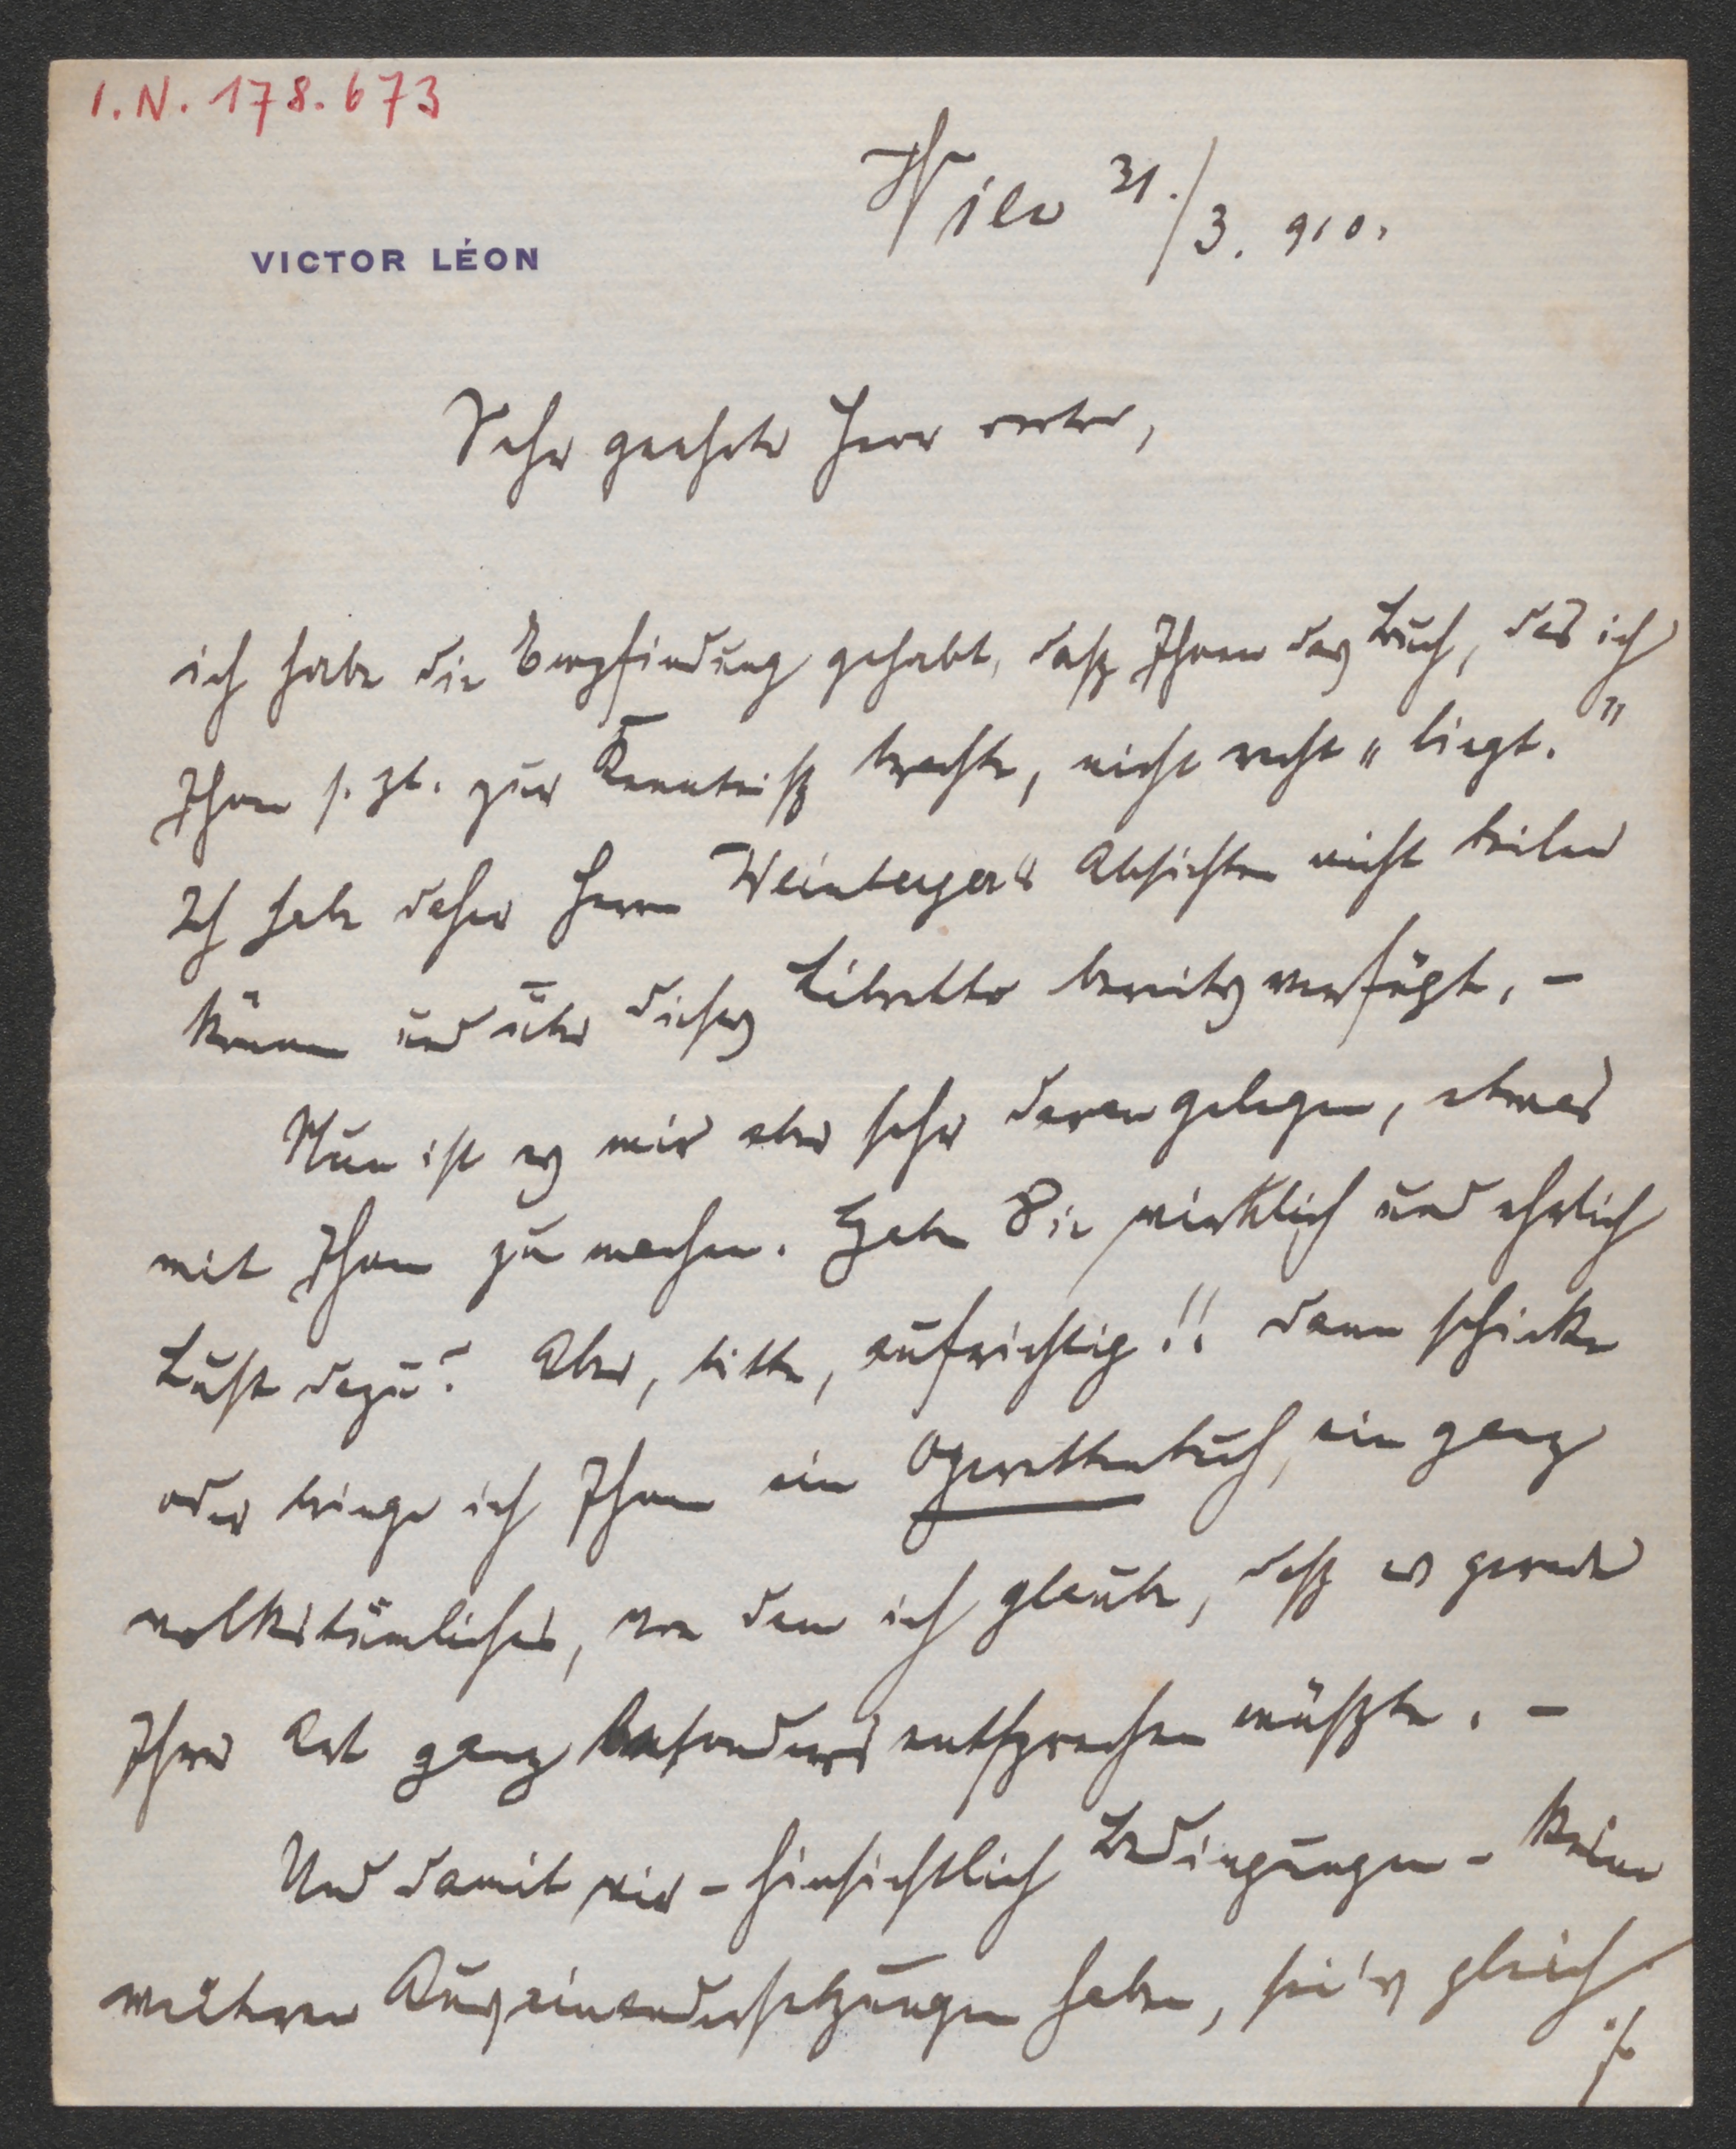 I.N. 178.673
Wien 31./3. 910.
VICTOR LÉON
Sehr geehrter Herr
ich habe die Empfindung gehabt, dasz Ihnen das Buch, das ich
Ihnen s. Zt. zur Kenntnisz brachte, nicht recht „liegt."
Ich habe daher Herrn Weinberger's Absichten nicht teilen
können und über dieses Libretto bereits verfügt. –
Nun ist es mir aber sehr daran gelegen, etwas
mit Ihnen zu machen. Haben Sie wirklich und ehrlich
Lust dazu? Aber, bitte, aufrichtig!! Dann schicke
oder bringe ich Ihnen ein Operettenbuch, ein ganz
volkstümliches, von dem ich glaube, dasz es gerade
Ihrer Art ganz besonders entsprechen müszte. –
Und damit wir – hinsichtlich Bedingungen – keine
weiteren Auseinandersetzungen haben, sei's gleich
./.